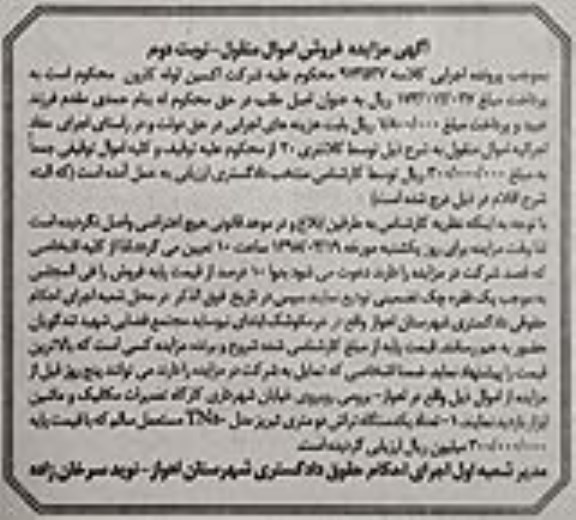 آگهی مزایده فروش اموال منقول - نوبت دوم
بموجب پرونده اجرایی کلاسه محکوم علیه شرکت اکسین لوله کارون محکوم است به
پرداخت مبلغ ریال به عنوان اصل طلب در حق محکوم له پیام حمدی مقدم فرزند
و پرداخت مبلغ ریال بابت هزینه های اجرایی در حق دولت و در راستای اجرای مفاد
اجرائیه اموال منقول به شرح ذیل توسط کلانتری ۲۰ از محکوم علیه توقیف و کلیه اموال توقیفی جمعاً
به مبلغ ۳۰۰/۰۰۰/۰۰۰ ریال توسط کارشناسی منتخب دادگستری ارزیابی به عمل آمده است (که البته
شرح اقلام در ذیل درج شده است)
با توجه به اینکه نظریه کارشناس به طرفین ابلاغ و در موعد قانونی هیچ اعتراضی واصل نگردیده است
لذا وقت مزایده برای روز یکشنبه مورخه ساعت ۱۰ تعیین می گردد. لذا از کلیه اشخاصی
که قصد شرکت در مزایده را دارند دعوت می شود بدوا ۱۰ درصد از قیمت پایه فروش را فی المجلس
به موجب یک فقره چک تضمینی تودیع نمایند سپس در تاریخ فوق الذکر در محل شعبه اجرای احکام
حقوقی دادگستری شهرستان اهواز واقع در مجتمع قضایی شهید تندگویان
حضور به هم رسانند. قیمت پایه از مبلغ کارشناسی شده شروع و برنده مزایده کسی است که بالاترین
قیمت را پیشنهاد نماید. ضمنا اشخاصی که تمایل به شرکت در مزایده را دارند می توانند پنج روز قبل از
مزایده از اموال ذیل واقع در اهواز - روبروی خیابان شهرداری کارگاه تعمیرات مکانیک و ماشین
ابزار بازدید نمایند. ۱- تعداد یکدستگاه تراش دو متری تبریز مدل TN50 مستعمل سالم که با قیمت پایه
۳۰۰/۰۰۰/۰۰۰ میلیون ریال ارزیابی گردیده است.
مدیر شعبه اول اجرای احکام حقوقی دادگستری شهرستان اهواز - نوید سرخان زاده